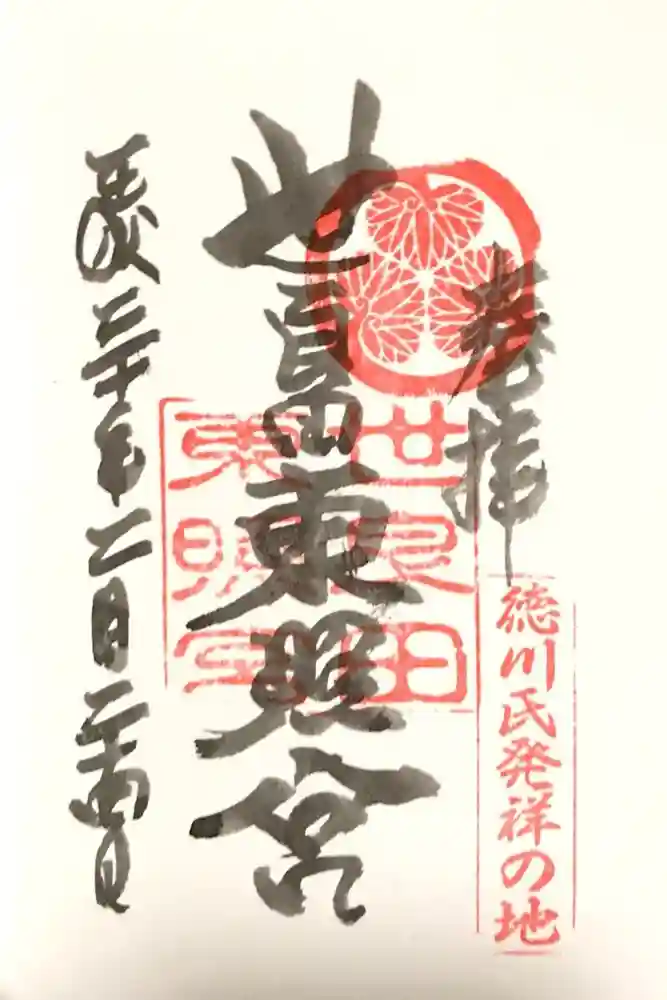 奉拝
徳川氏発祥の地
世良田東照宮
世良田
東照宮
平成三十年二月二十四日